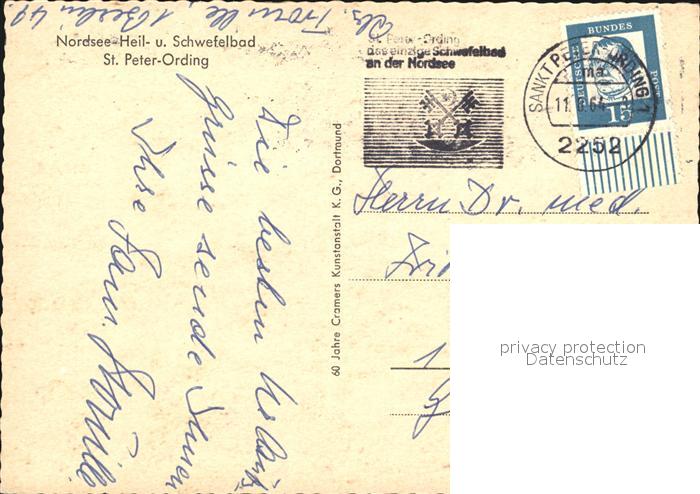 Nordsee-Heil- u. Schwefelbad
St. Peter-Ording
Die besten
Grüsse sendet Ihnen
Ihre Fam.
1 Berlin 49
60 Jahre Cramers Kunstanstalt K. G., Dortmund
St. Peter-Ording
das einzige Schwefelbad
an der Nordsee
SANKT PETER-ORDING 1
2252
DEUTSCHE BUNDESPOST
15
Herrn Dr. med.
1
privacy protection
Datenschutz